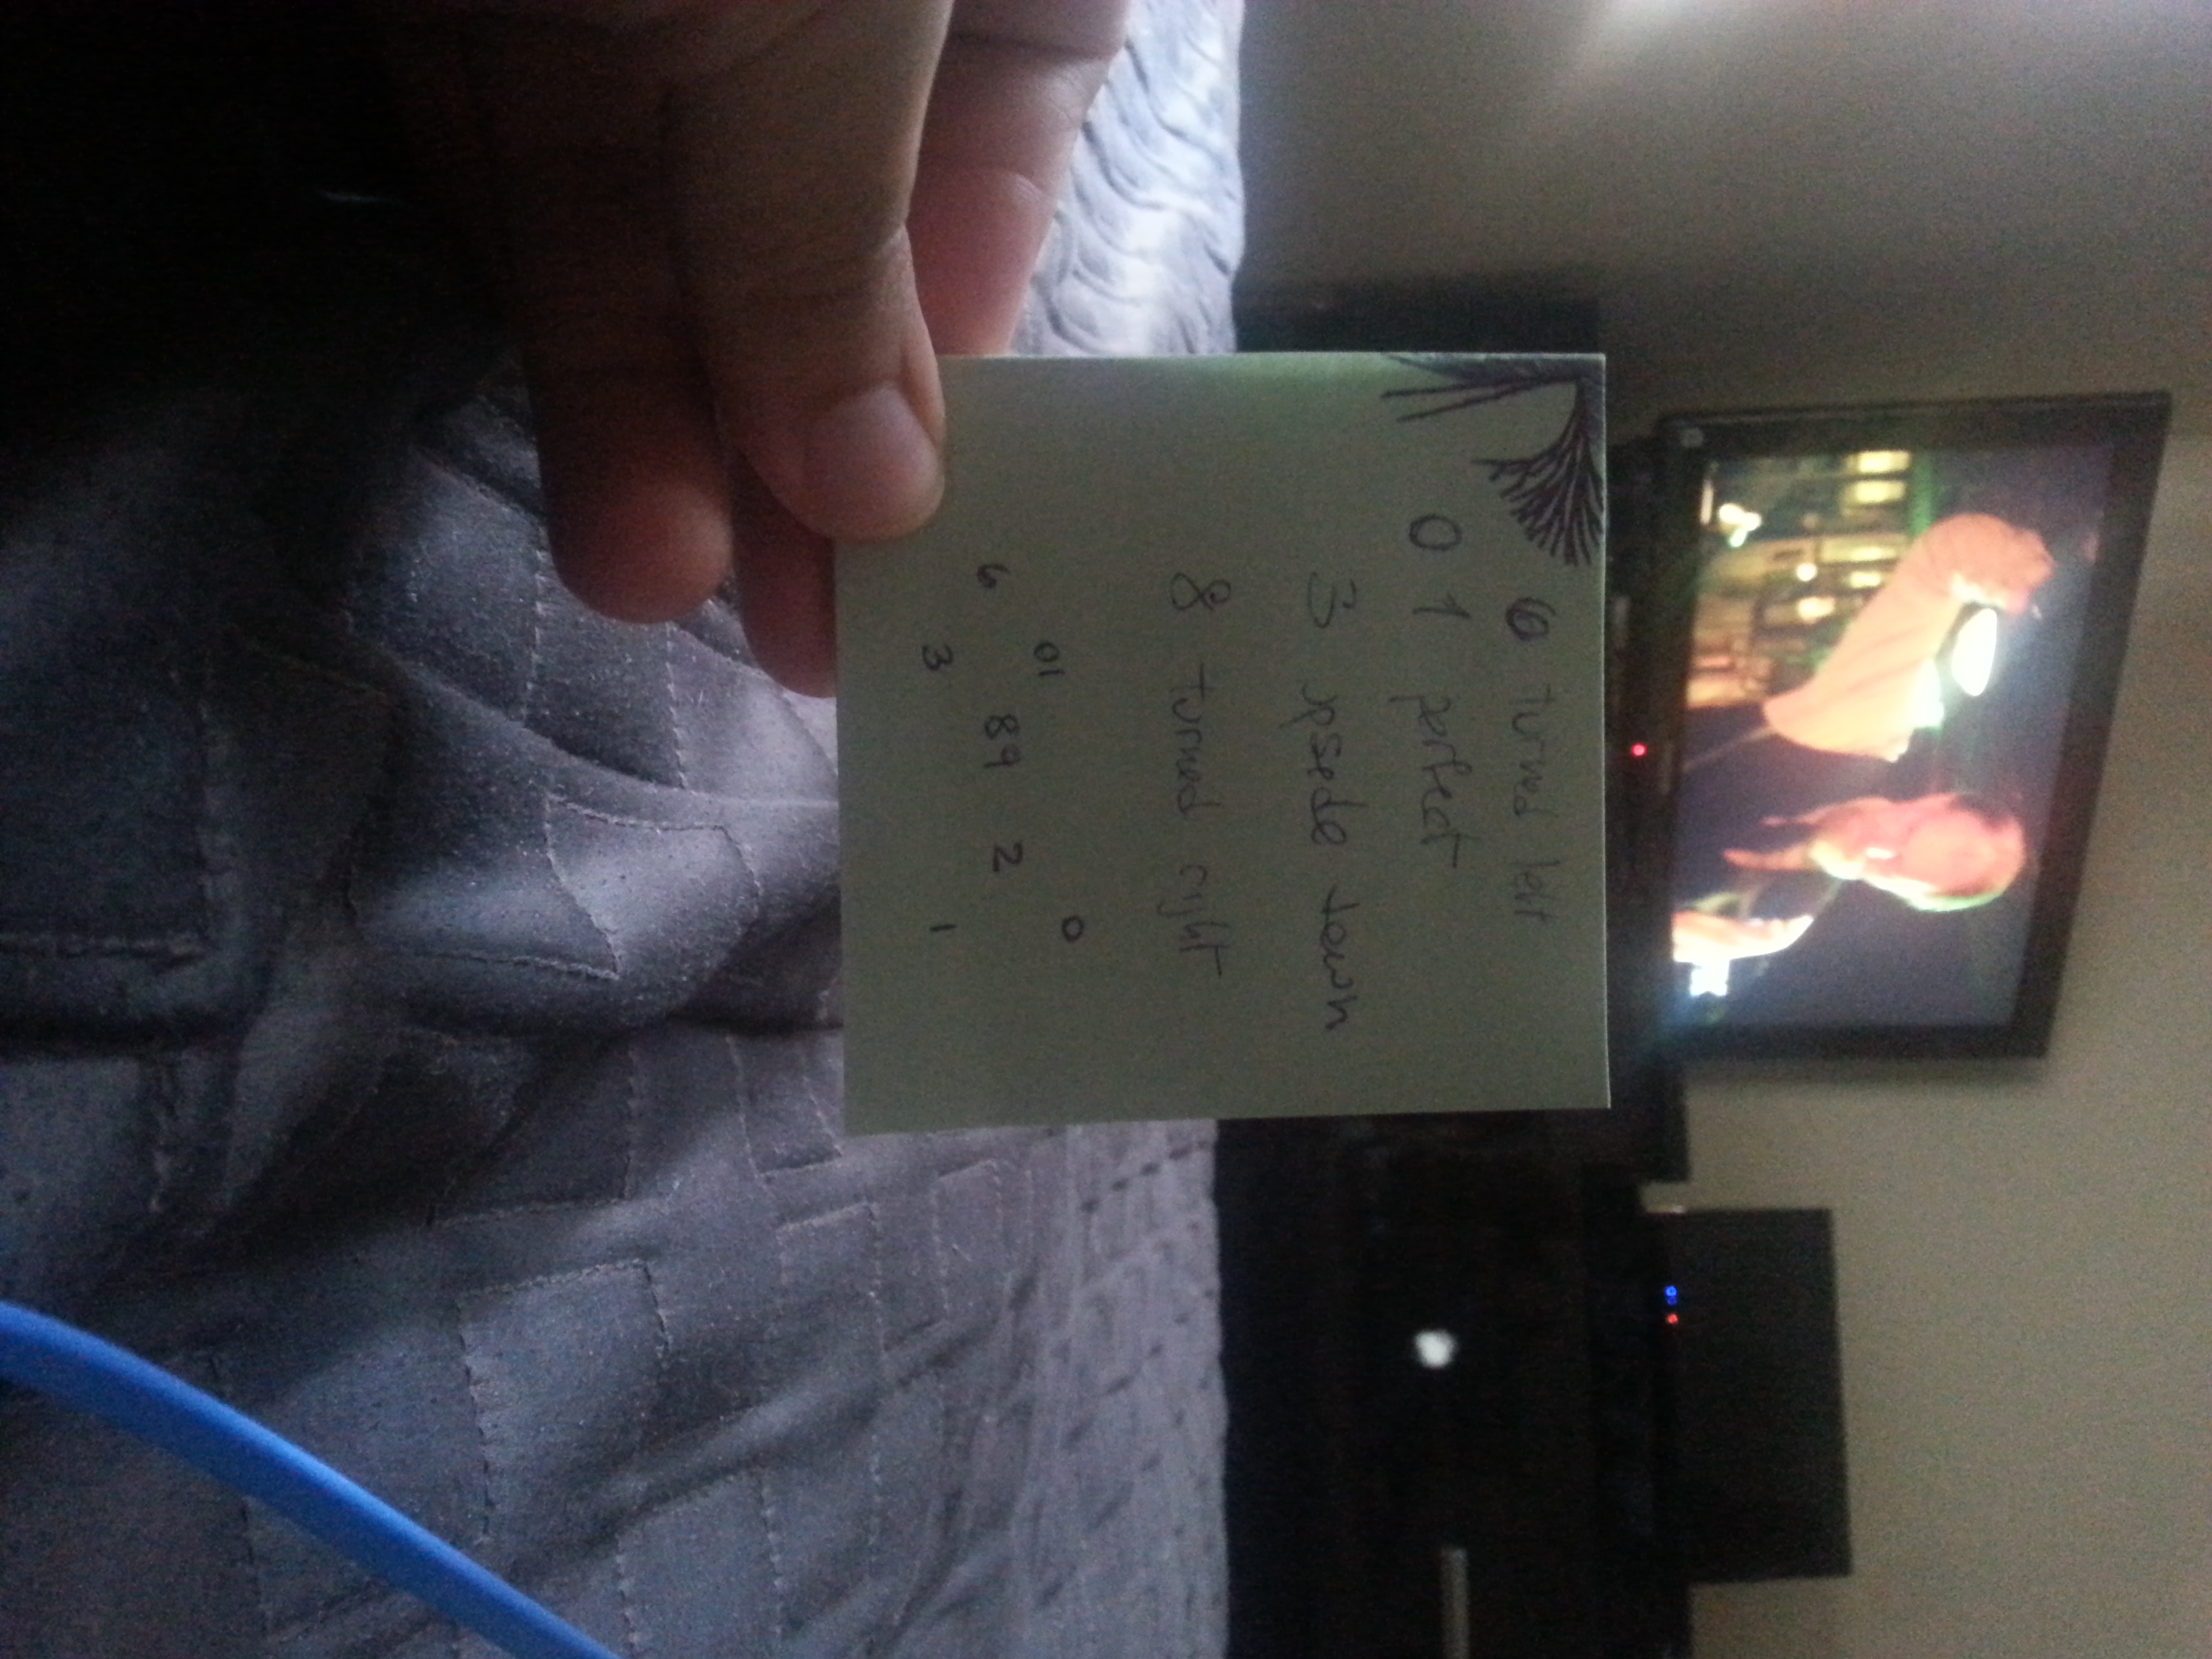 6 turned left
0 1 perfect
3 upside down
8 turned right
0
01
6 89 2
3 1